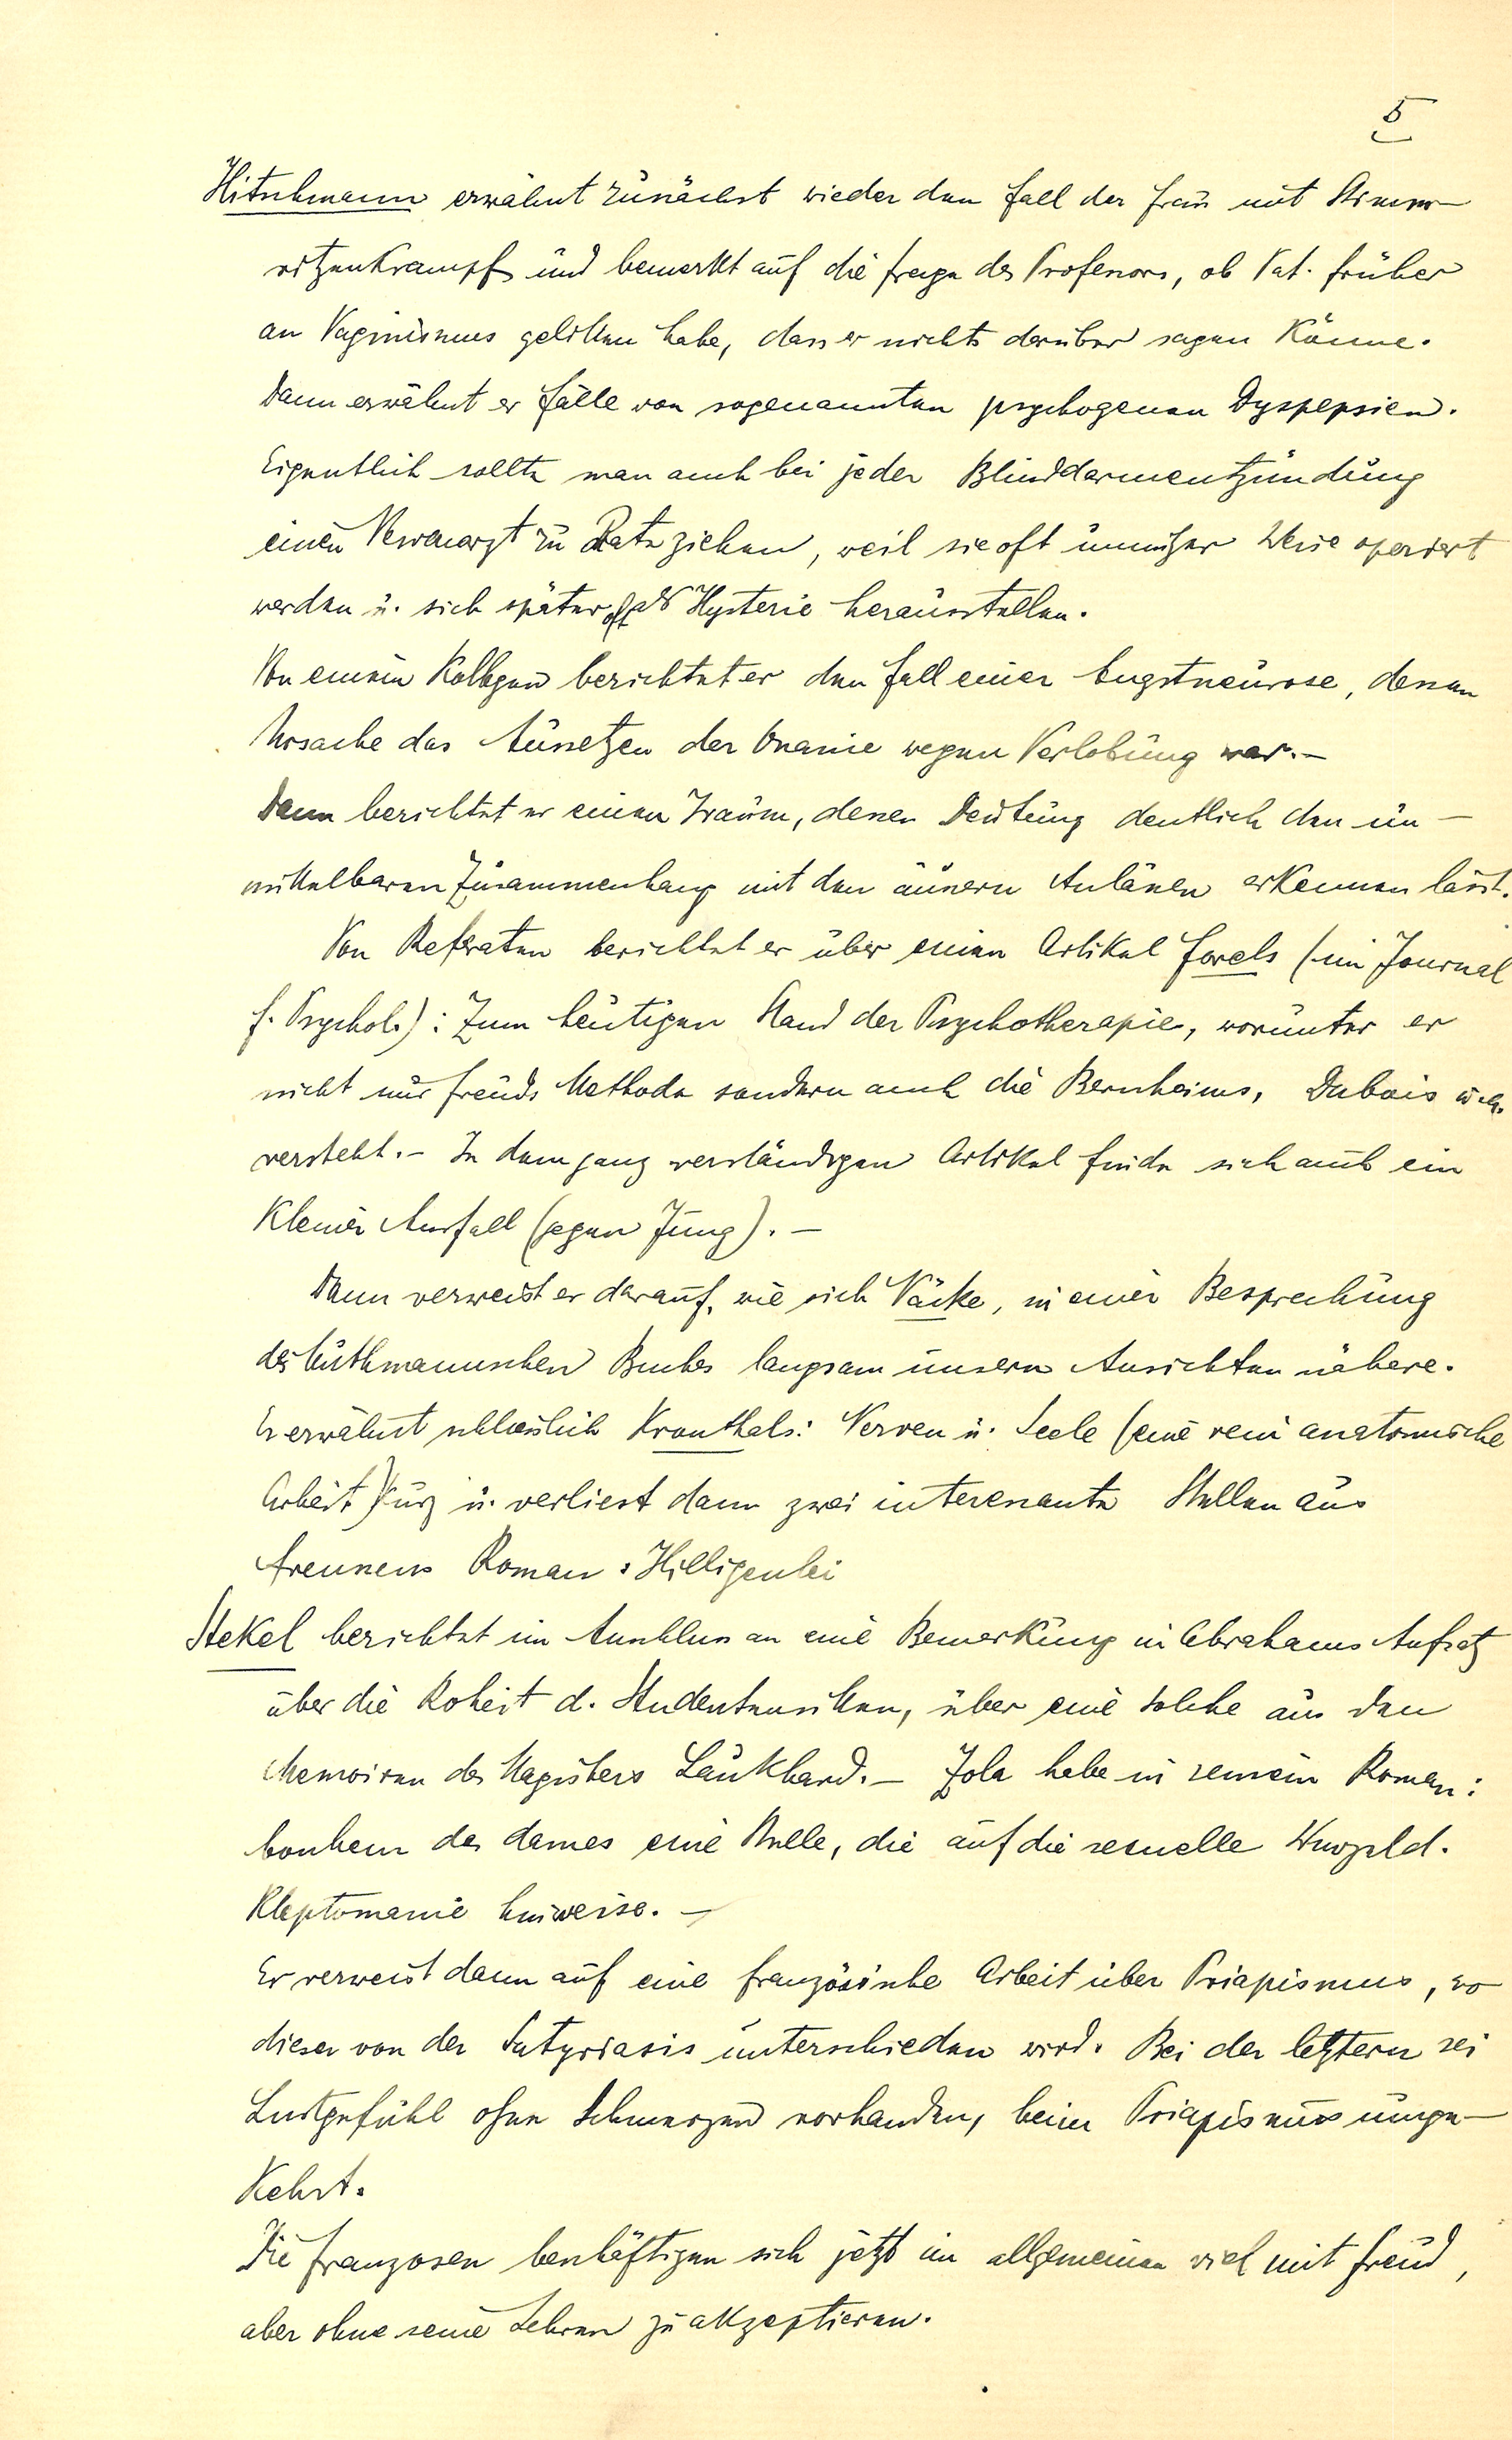 5
Hitschmann erwähnt zunächst wieder den Fall der Frau mit Stimm-
ritzenkrampf und bemerkt auf die Frage des Professors, ob Pat. früher
an Vaginismus gelitten habe, dass er nichts darüber sagen könne.
Dann erwähnt er Fälle von sogenannten psychogenen Dyspepsien.
Eigentlich sollte man auch bei jeder Blinddarmentzündung
einen Nervenarzt zu Rate ziehen, weil sie oft unnützer Weise operiert
werden u. sich später oft als Hysterie herausstellen.
Von einem Kollegen berichtet er den Fall einer Angstneurose, deren
Ursache das Aussetzen der Onanie wegen Verlobung war.-
Dann berichtet er einen Traum, dessen Deutung deutlich den un-
mittelbaren Zusammenhang mit den äussern Anlässen erkennen lässt.
Von Referaten berichtet er über einen Artikel Forels (im Journal
f. Psychol.): Zum heutigen Stand der Psychotherapie, worunter er
nicht nur Freuds Methode sondern auch die Bernheims, Dubois u. a.
versteht.- In dem ganz verständigen Artikel finde sich auch ein
kleiner Ausfall (gegen Jung).-
Dann verweist er darauf, wie sich Näcke, in einer Besprechung
des Muthmannschen Buches langsam unsern Ansichten nähere.
Er erwähnt schliesslich Kronthals: Nerven u. Seele (eine rein anatomische
Arbeit) kurz u. verliest dann zwei interessante Stellen aus
Frenssens Roman: Hilligenlei
Stekel berichtet im Anschluss an eine Bemerkung in Abrahams Aufsatz
über die Roheit d. Studentensitten, über eine solche aus den
Memoiren des Magisters Laukhard.- Zola habe in seinem Roman:
bonheur des dames eine Stelle, die auf die sexuelle Wurzel d.
Kleptomanie hinweise.-
Er verweist dann auf eine französische Arbeit über Priapismus, wo
dieser von der Satyriasis unterschieden wird. Bei der letztern sei
Lustgefühl ohne Schmerzen vorhanden, beim Priapismus umge-
kehrt.
Die Franzosen beschäftigen sich jetzt im allgemeinen viel mit Freud,
aber ohne seine Lehren zu akzeptieren.